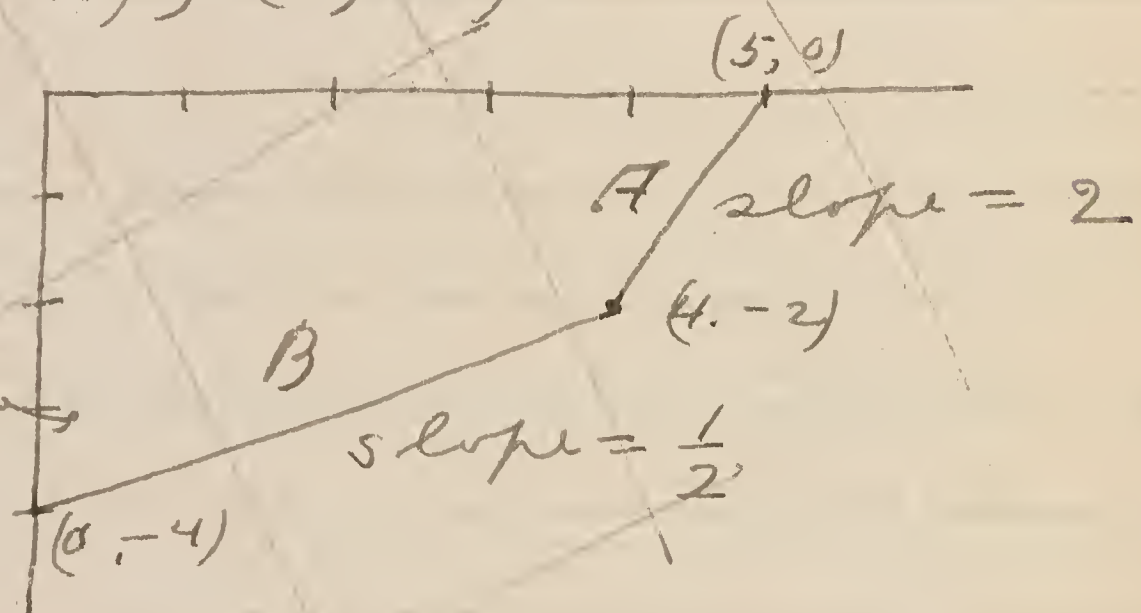 (5, 0)
A slope = 2
(4. -2)
B
slope = 1/2
(0, -4)